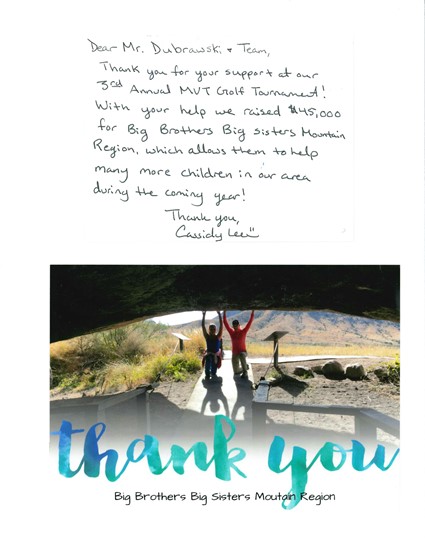 Dear Mr. Dubrawski + Team,
Thank you for your support at our
3rd Annual MVT Golf Tournament!
With your help we raised $45,000
for Big Brothers Big Sisters Mountain
Region, which allows them to help
many more children in our area
during the coming year!
Thank you,
Cassidy Lee
thank you
Big Brothers Big Sisters Moutain Region